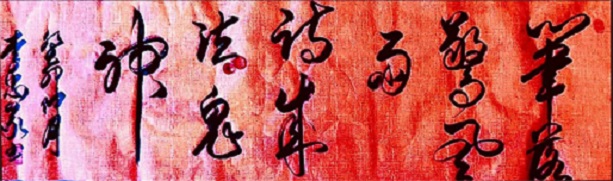 筆落
驚風
雨
詩成
泣鬼
神
癸卯月
李